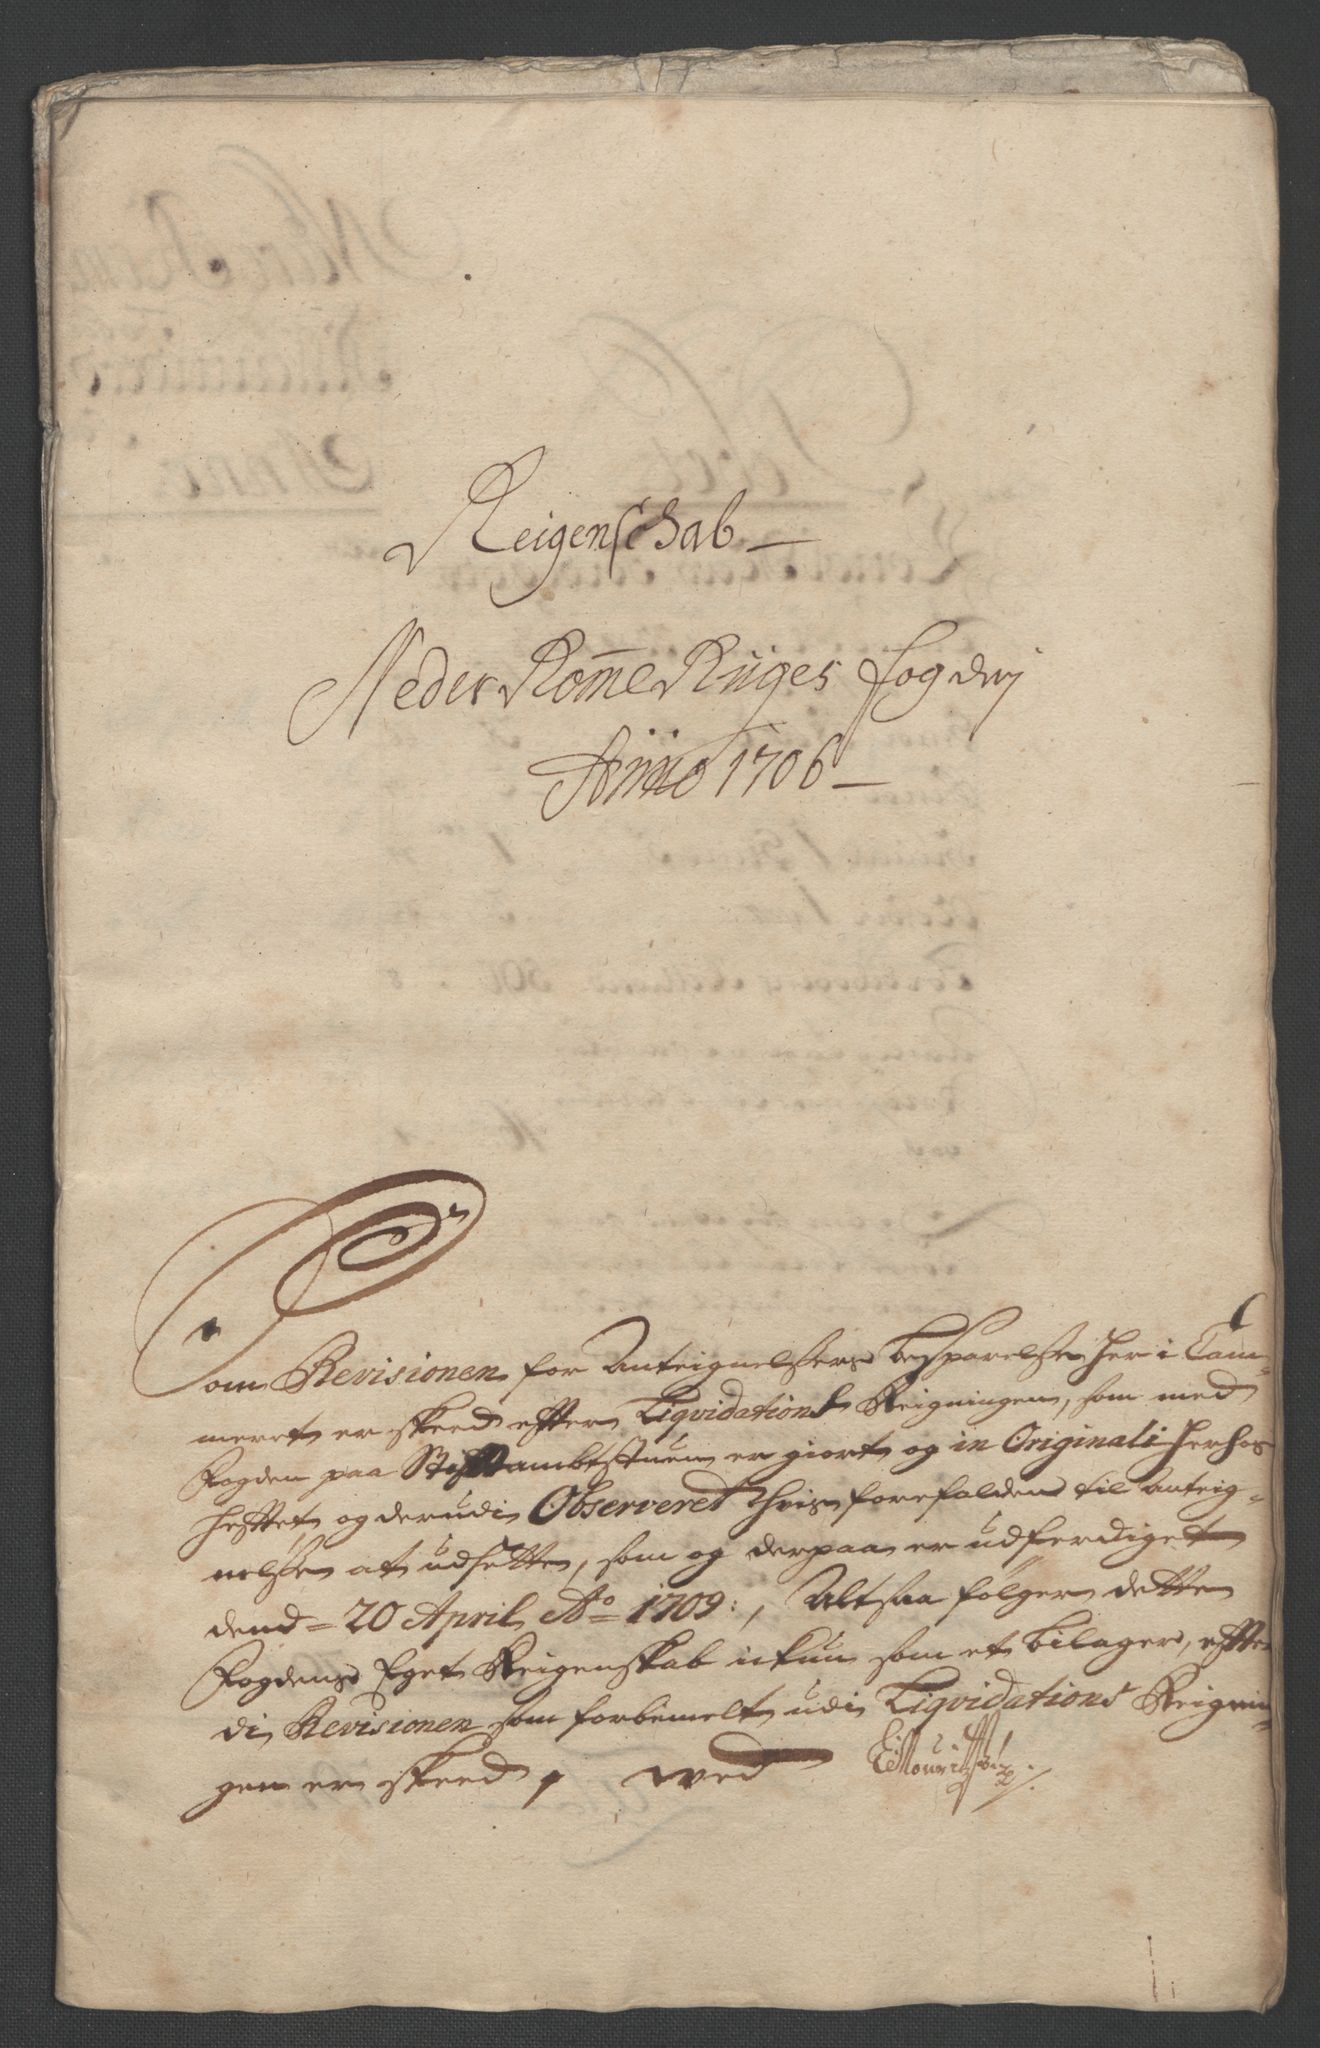 Reigenschab
Neder Rom̄e Riiges fogdrij
Anno 1706
Som Revisionen for Anteignelsers besparelse her i Cam-
meret er skeed efter Liqvidations Reigningen, som med
Fogden paa Stiftambtstuen er giort og in Originali herhos
heftet, og derudi Observeret hvis forefalden til Anteig-
nelsse at udsette, som og derpaa er udferdiget
dend 20 April Ao 1709:, Altsaa følger dette
Fogdens Eget Reigenskab ickun som et bilager, efter
di Revisionen som forbemelt udi Liqvidations Reignin-
gen er skeed, wed